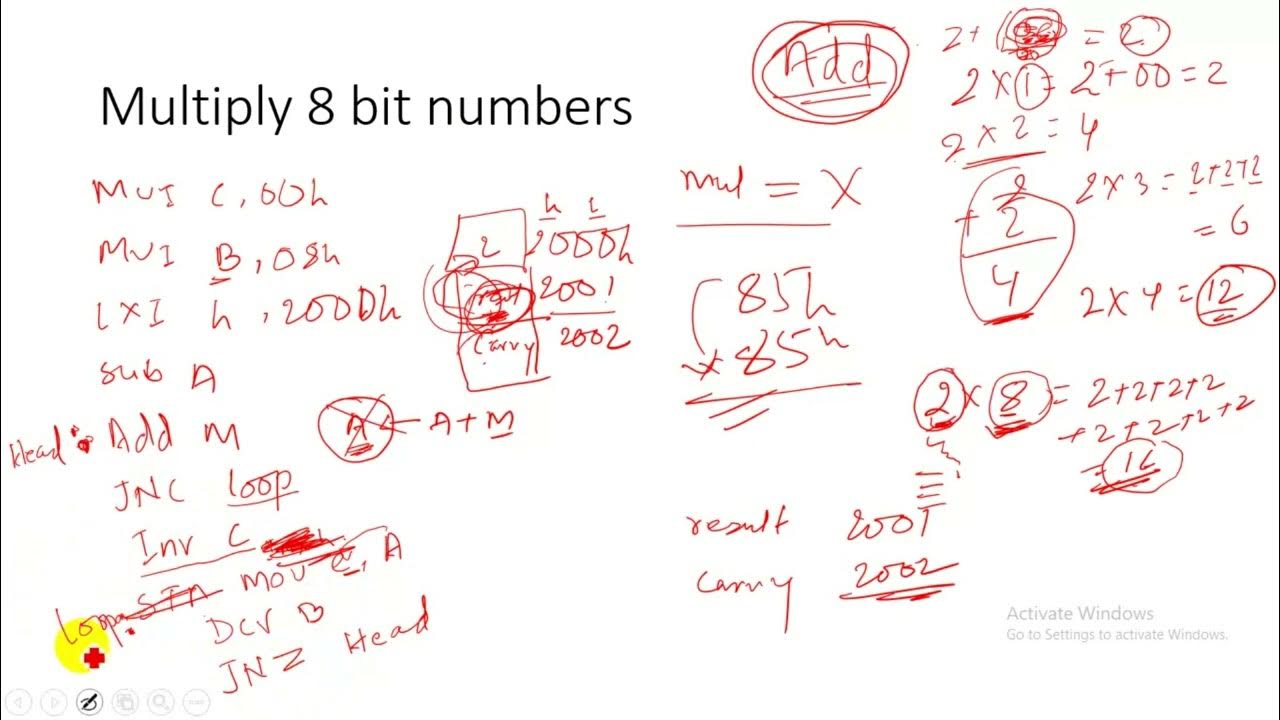 Multiply 8 bit numbers
MVI C, 00h
MVI B, 08h
LXI h, 2000h
sub A
Head: Add M
JNC loop
Inr C
loop: STA mov e, A
Dcr B
JNZ Head
h l
2 2000h
2001
carry 2002
A ← A + M
Add
mul = X
85h
x 85h
result 2001
carry 2002
2 + = 2
2 x 1 = 2 + 00 = 2
2 x 2 = 4
2
+ 2
4
2 x 3 = 2+2+2
= 6
2 x 4 = 12
2 x 8 = 2+2+2+2
+2+2+2+2
= 16
Activate Windows
Go to Settings to activate Windows.